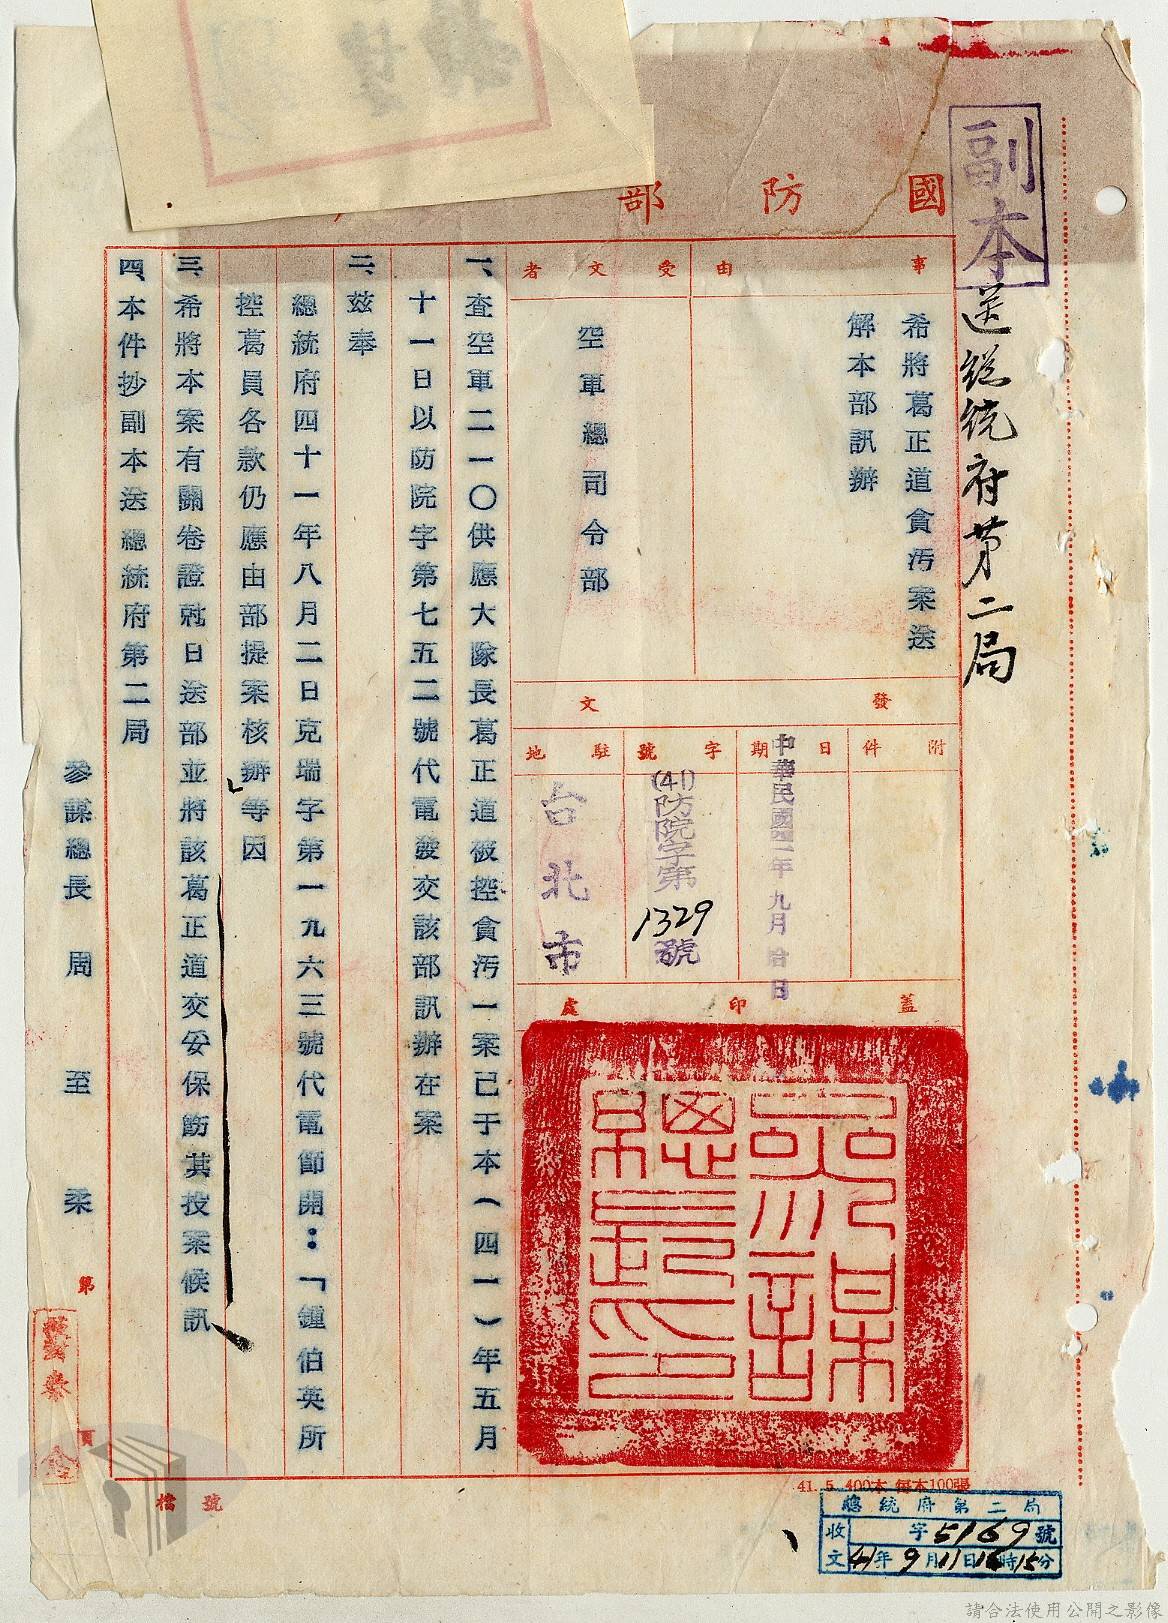 副本
送總統府第二局
國防部
事由
希將葛正道貪污案送
解本部訊辦
受文者
空軍總司令部
發文
附件
日期
中華民國四一年九月拾日
字號
(41)防院字第1329號
駐地
台北市
蓋印處
參謀總長之印
一、查空軍二一〇供應大隊長葛正道被控貪污一案已于本(四一)年五月
十一日以防院字第七五二號代電發交該部訊辦在案
二、茲奉
總統府四十一年八月二日克瑞字第一九六三號代電節開：「鍾伯英所
控葛員各款仍應由部提案核辦等因
三、希將本案有關卷證尅日送部並將該葛正道交妥保飭其投案候訊
四、本件抄副本送總統府第二局
參謀總長 周至柔
第
頁
檔號
41. 5. 400本 每本100張
總統府第二局
收文 字5169號
41年9月11日16時15分
請合法使用公開之影像